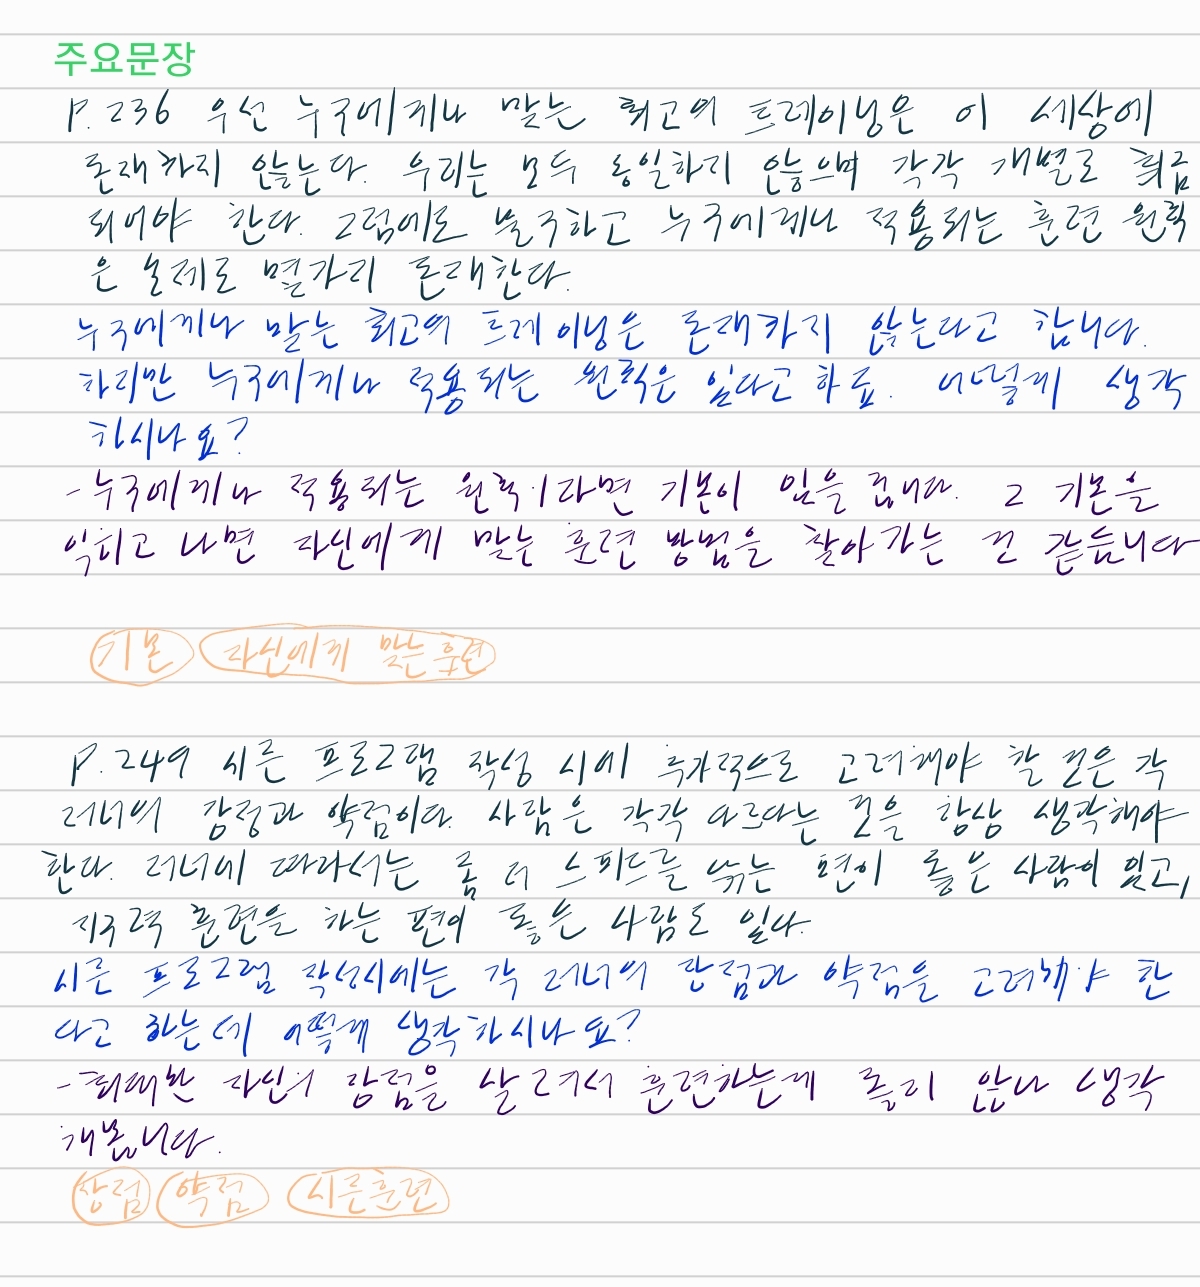 주요문장
P.236 우선 누구에게나 맞는 최고의 트레이닝은 이 세상에
존재하지 않는다. 우리는 모두 동일하지 않으며 각각 개별로 취급
되어야 한다. 그럼에도 불구하고 누구에게나 적용되는 훈련 원칙
은 실제로 몇가지 존재한다.
누구에게나 맞는 최고의 트레이닝은 존재하지 않는다고 합니다.
하지만 누구에게나 적용되는 원칙은 있다고 하죠. 어떻게 생각
하시나요?
-누구에게나 적용되는 원칙이라면 기본이 있을 겁니다. 그 기본을
익히고 나면 자신에게 맞는 훈련 방법을 찾아가는 건 같습니다
기본 자신에게 맞는 훈련
P.249 시즌 프로그램 작성 시에 추가적으로 고려해야 할 것은 각
러너의 강점과 약점이다. 사람은 각각 다르다는 것을 항상 생각해야
한다. 러너에 따라서는 좀 더 스피드를 닦는 편이 좋은 사람이 있고,
지구력 훈련을 하는 편이 좋은 사람도 있다.
시즌 프로그램 작성시에는 각 러너의 장점과 약점을 고려해야 한
다고 하는데 어떻게 생각하시나요?
-최대한 자신의 강점을 살려서 훈련하는게 좋지 않나 생각
해봅니다.
장점 약점 시즌훈련